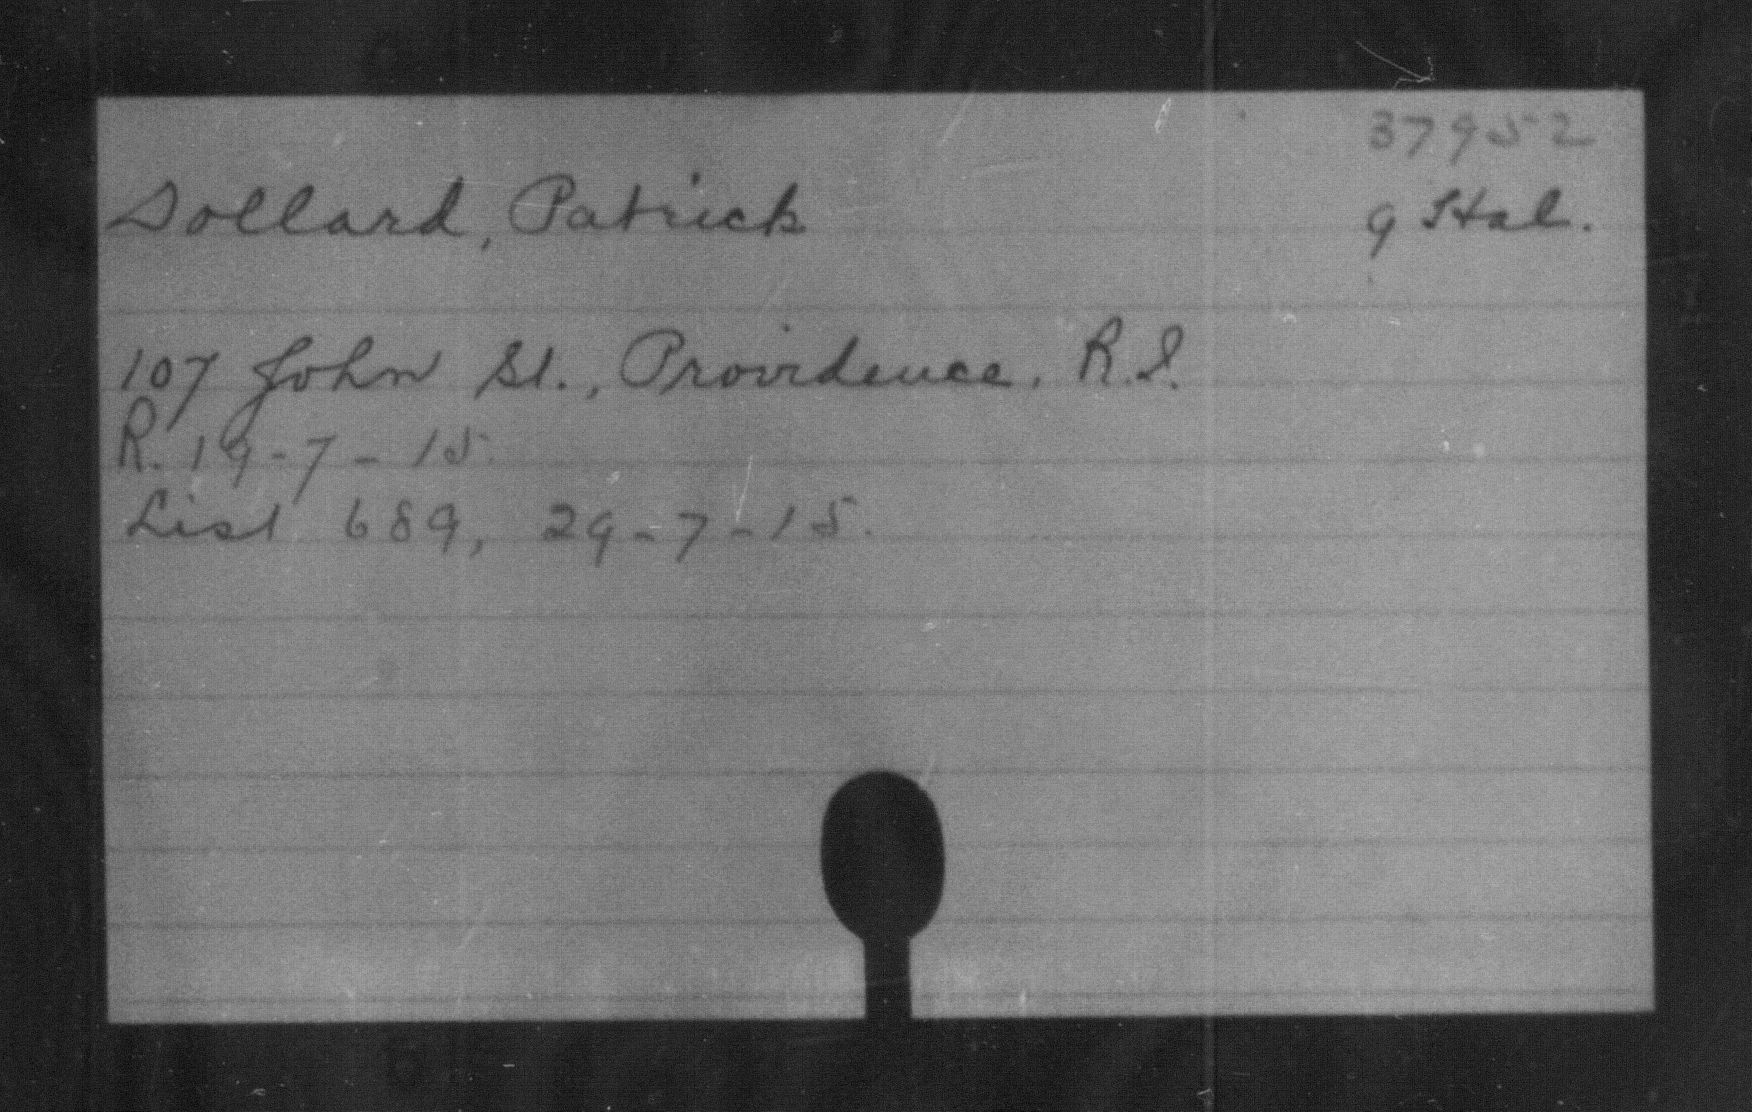 37952
Dollard, Patrick
9 Hal.
107 John St., Providence, R.I.
R. 19-7-15.
List 689, 29-7-15.